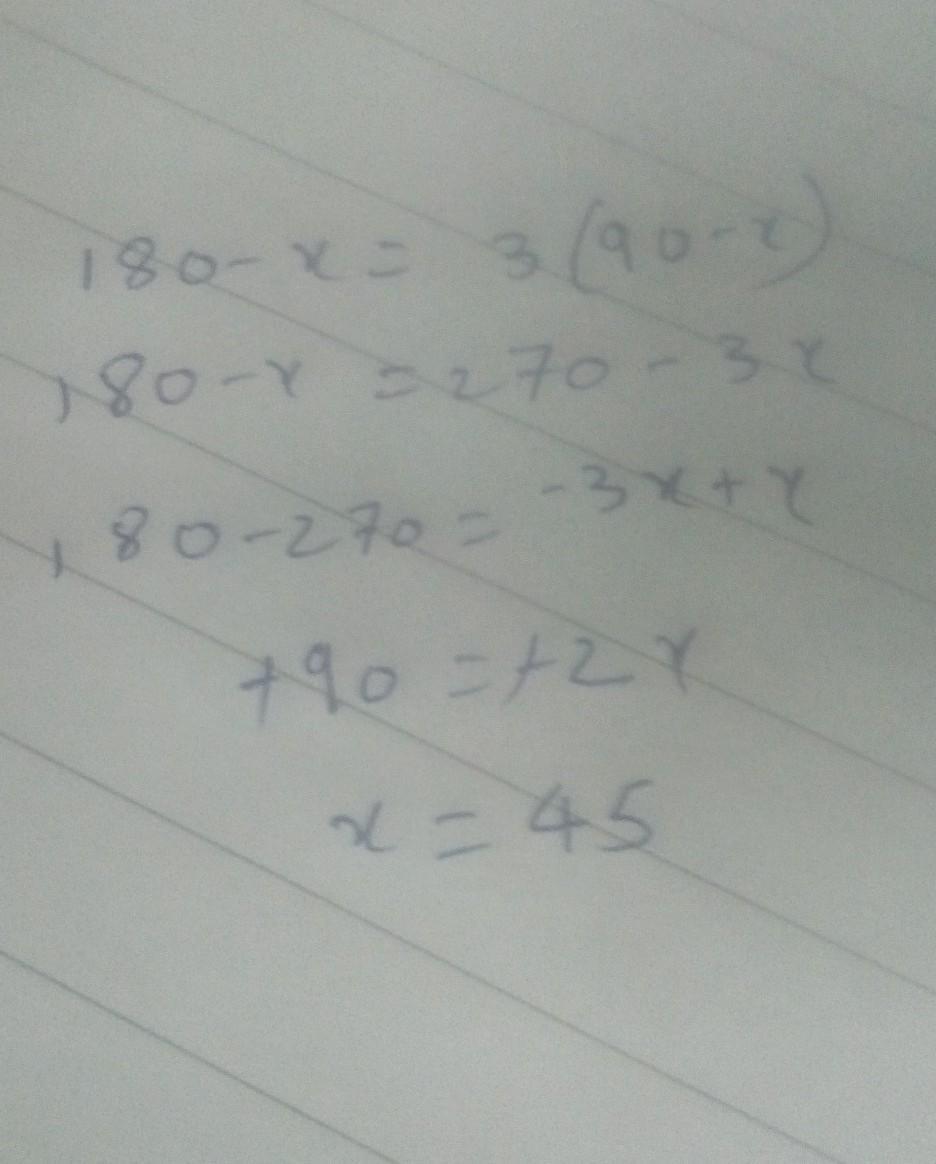 180-x = 3(90-x)
180-x = 270-3x
180-270 = -3x+x
+90 = +2x
x = 45